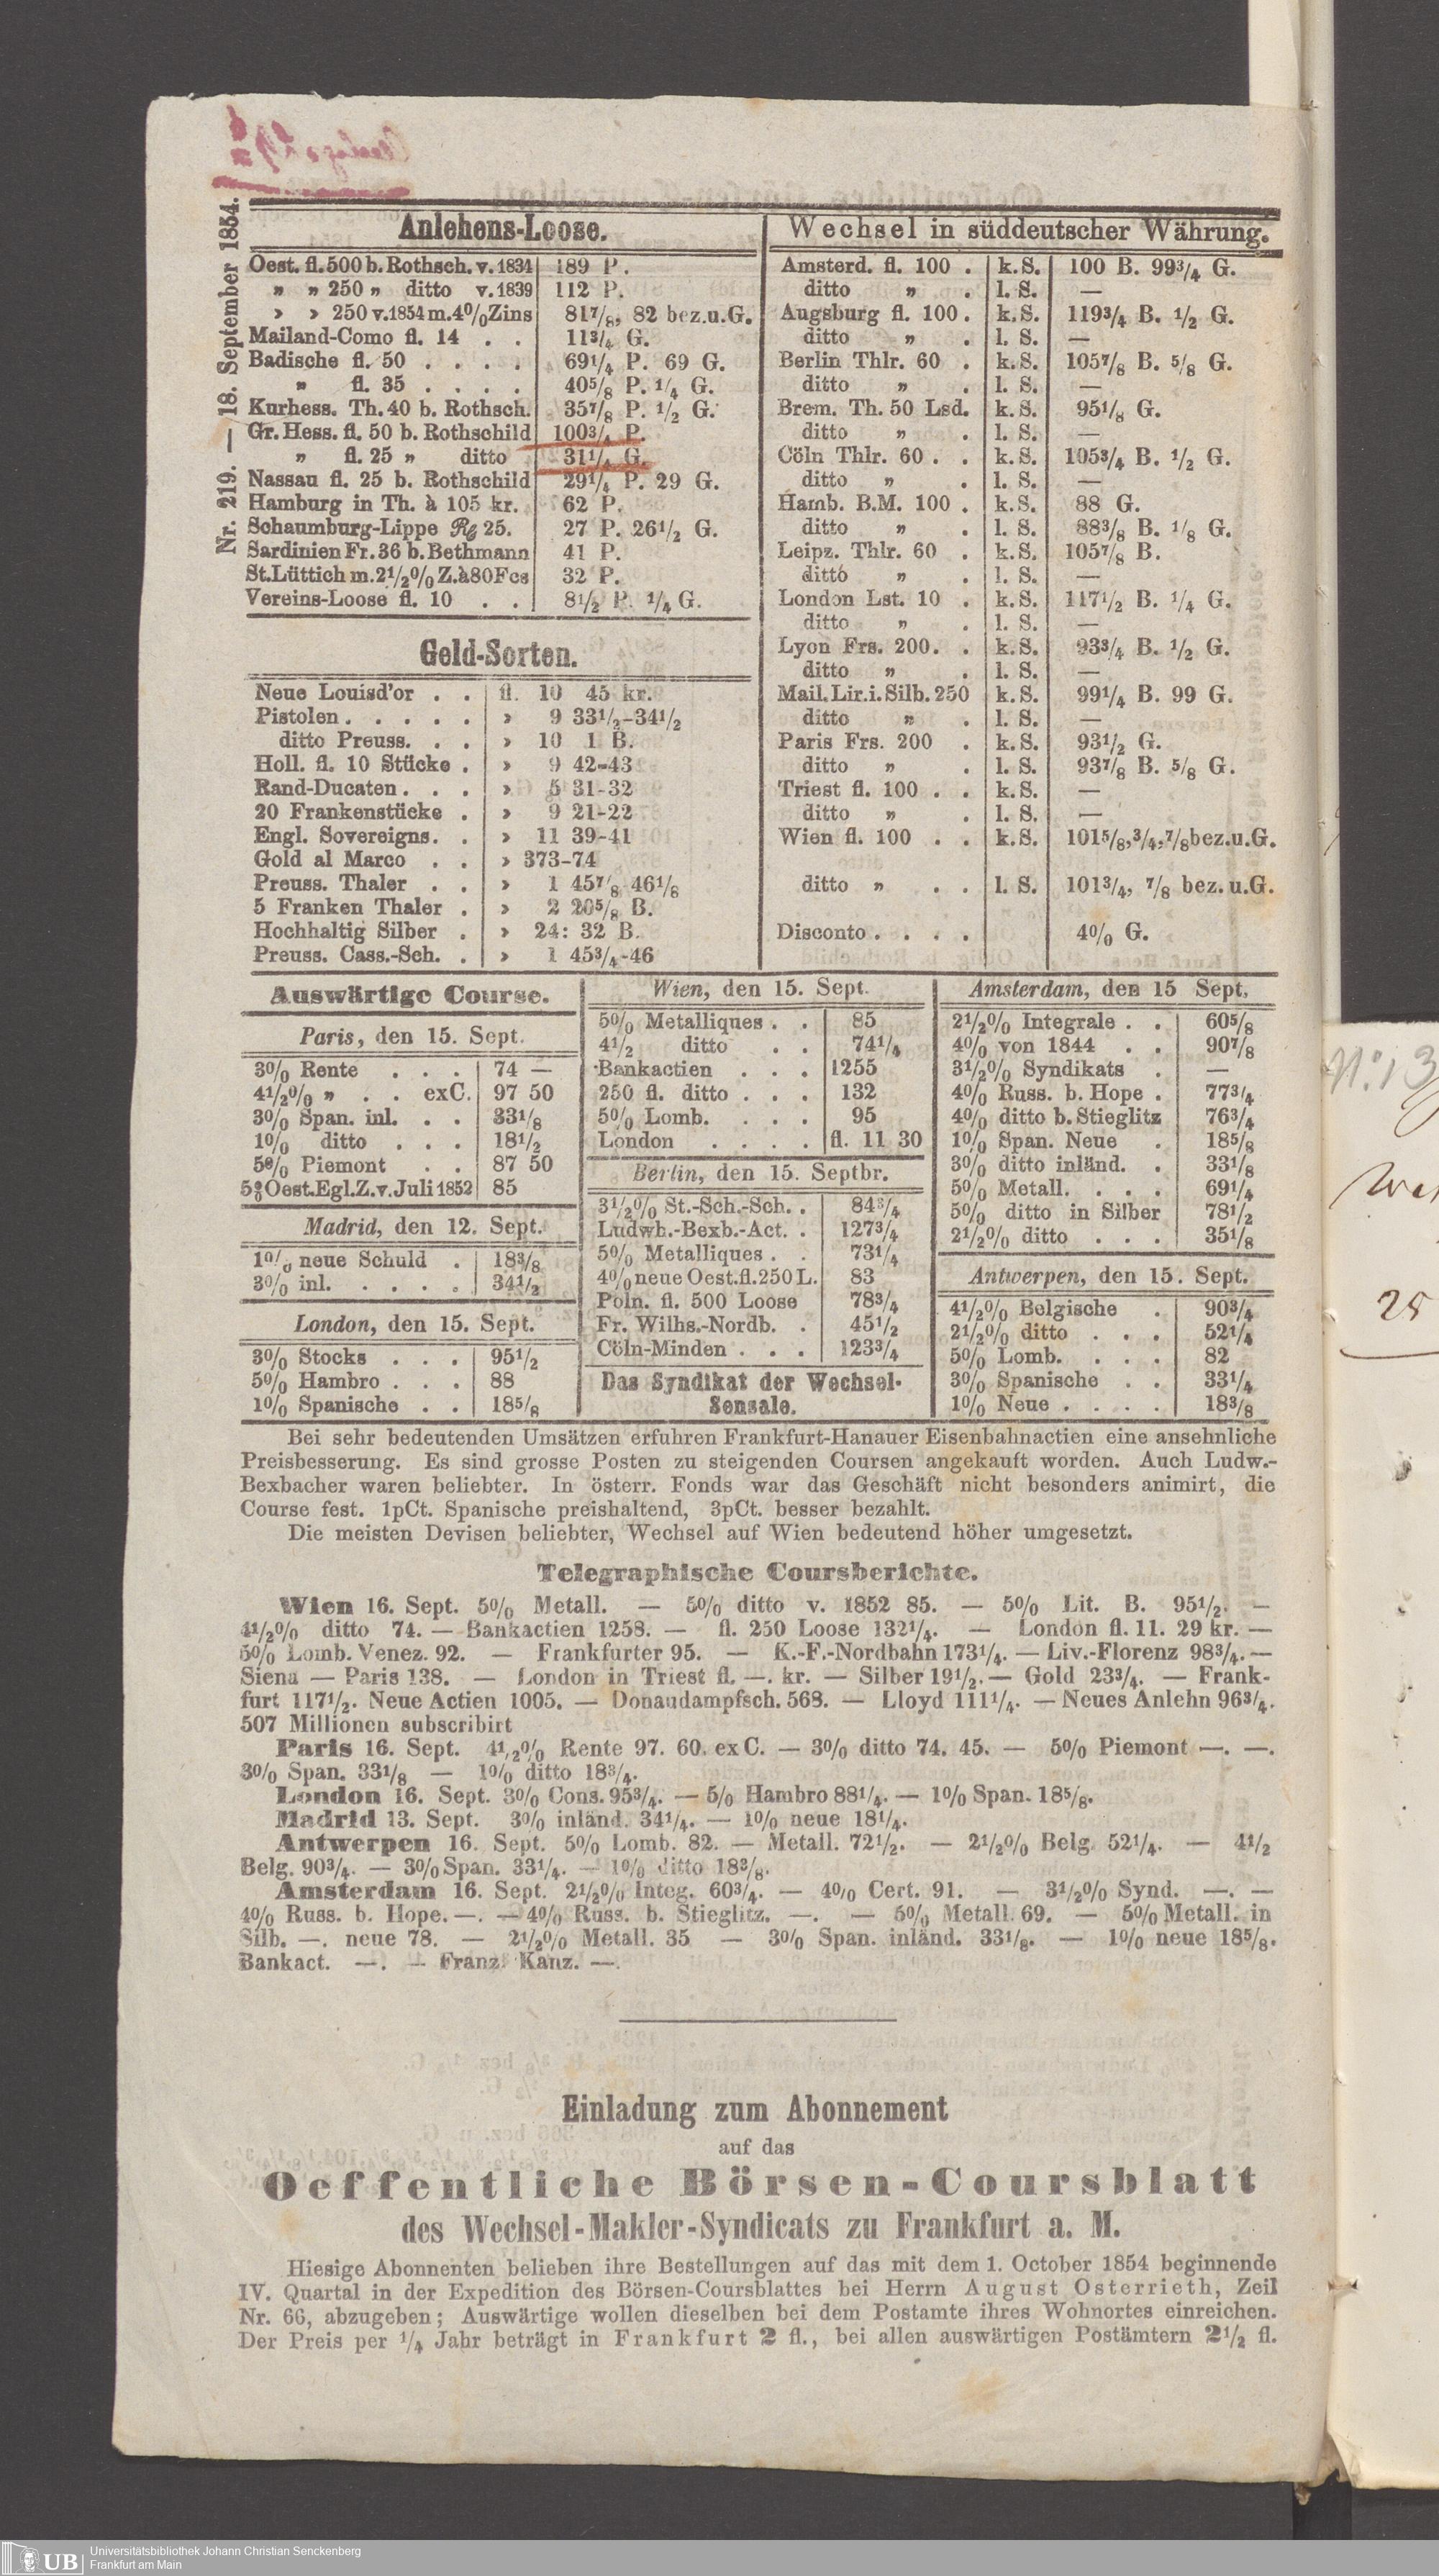 Nr. 219. — 18. September 1854.
Anlehens-Loose.
Oest. fl. 500 b. Rothsch. v. 1834 189 P.
„ „ 250 „ ditto v. 1839 112 P.
» » 250 v. 1854 m. 4% Zins 81 7/8, 82 bez. u. G.
Mailand-Como fl. 14 . . 11 3/4 G.
Badische fl. 50 . . . . 69 1/4 P. 69 G.
„ fl. 35 . . . . 40 5/8 P. 1/4 G.
Kurhess. Th. 40 b. Rothsch. 35 7/8 P. 1/2 G.
Gr. Hess. fl. 50 b. Rothschild 100 3/4 P.
„ fl. 25 „ ditto 31 1/4 G.
Nassau fl. 25 b. Rothschild 29 1/4 P. 29 G.
Hamburg in Th. à 105 kr. 62 P.
Schaumburg-Lippe Rg 25. 27 P. 26 1/2 G.
Sardinien Fr. 36 b. Bethmann 41 P.
St. Lüttich m. 2 1/2% Z. à 80 Fcs 32 P.
Vereins-Loose fl. 10 . . 8 1/2 P. 1/4 G.
Geld-Sorten.
Neue Louisd'or . . fl. 10 45 kr.
Pistolen . . . . . » 9 33 1/2-34 1/2
ditto Preuss. . . » 10 1 B.
Holl. fl. 10 Stücke . » 9 42-43
Rand-Ducaten . . . » 5 31-32
20 Frankenstücke . » 9 21-22
Engl. Sovereigns . . » 11 39-41
Gold al Marco . . » 373-74
Preuss. Thaler . . » 1 45 7/8 46 1/8
5 Franken Thaler . » 2 20 5/8 B.
Hochhaltig Silber . » 24: 32 B.
Preuss. Cass.-Sch. . » 1 45 3/4-46
Wechsel in süddeutscher Währung.
Amsterd. fl. 100 . k. S. 100 B. 99 3/4 G.
ditto „ . l. S. —
Augsburg fl. 100 . k. S. 119 3/4 B. 1/2 G.
ditto „ . l. S. —
Berlin Thlr. 60 . k. S. 105 7/8 B. 5/8 G.
ditto „ . l. S. —
Brem. Th. 50 Lsd. k. S. 95 1/8 G.
ditto „ . l. S. —
Cöln Thlr. 60 . . k. S. 105 3/4 B. 1/2 G.
ditto „ . l. S. —
Hamb. B.M. 100 . k. S. 88 G.
ditto „ . l. S. 88 3/8 B. 1/8 G.
Leipz. Thlr. 60 . k. S. 105 7/8 B.
ditto „ . l. S. —
London Lst. 10 . k. S. 117 1/2 B. 1/4 G.
ditto „ . l. S. —
Lyon Frs. 200 . . k. S. 93 3/4 B. 1/2 G.
ditto „ . l. S. —
Mail. Lir. i. Silb. 250 k. S. 99 1/4 B. 99 G.
ditto „ . l. S. —
Paris Frs. 200 . k. S. 93 1/2 G.
ditto „ . l. S. 93 7/8 B. 5/8 G.
Triest fl. 100 . . k. S. —
ditto „ . l. S. —
Wien fl. 100 . . k. S. 101 5/8, 3/4, 7/8 bez. u. G.
ditto „ . . l. S. 101 3/4, 7/8 bez. u. G.
Disconto . . . . 4% G.
Auswärtige Course.
Paris, den 15. Sept.
3% Rente . . . 74 —
4 1/2% „ . . exC. 97 50
3% Span. inl. . . 33 1/8
1% ditto . . . 18 1/2
5% Piemont . . 87 50
5% Oest. Egl. Z. v. Juli 1852 85
Madrid, den 12. Sept.
1% neue Schuld . 18 3/8
3% inl. . . . . 34 1/2
London, den 15. Sept.
3% Stocks . . . 95 1/2
5% Hambro . . . 88
1% Spanische . . 18 5/8
Wien, den 15. Sept.
5% Metalliques . . 85
4 1/2 ditto . . 74 1/4
Bankactien . . . 1255
250 fl. ditto . . . 132
5% Lomb. . . . 95
London . . . . fl. 11 30
Berlin, den 15. Septbr.
3 1/2% St.-Sch.-Sch. . 84 3/4
Ludwh.-Bexb.-Act. . 127 3/4
5% Metalliques . . 73 1/4
4% neue Oest. fl. 250 L. 83
Poln. fl. 500 Loose 78 3/4
Fr. Wilhs.-Nordb. . 45 1/2
Cöln-Minden . . . 123 3/4
Das Syndikat der Wechsel-
Sensale.
Amsterdam, den 15 Sept.
2 1/2% Integrale . . 60 5/8
4% von 1844 . . 90 7/8
3 1/2% Syndikats . —
4% Russ. b. Hope . 77 3/4
4% ditto b. Stieglitz 76 3/4
1% Span. Neue . 18 5/8
3% ditto inländ. . 33 1/8
5% Metall. . . . 69 1/4
5% ditto in Silber 78 1/2
2 1/2% ditto . . . 35 1/8
Antwerpen, den 15. Sept.
4 1/2% Belgische . 90 3/4
2 1/2% ditto . . . 52 1/4
5% Lomb. . . . 82
3% Spanische . . 33 1/4
1% Neue . . . . 18 3/8
Bei sehr bedeutenden Umsätzen erfuhren Frankfurt-Hanauer Eisenbahnactien eine ansehnliche
Preisbesserung. Es sind grosse Posten zu steigenden Coursen angekauft worden. Auch Ludw.-
Bexbacher waren beliebter. In österr. Fonds war das Geschäft nicht besonders animirt, die
Course fest. 1pCt. Spanische preishaltend, 3pCt. besser bezahlt.
Die meisten Devisen beliebter, Wechsel auf Wien bedeutend höher umgesetzt.
Telegraphische Coursberichte.
Wien 16. Sept. 5% Metall. — 5% ditto v. 1852 85. — 5% Lit. B. 95 1/2. —
4 1/2% ditto 74. — Bankactien 1258. — fl. 250 Loose 132 1/4. — London fl. 11. 29 kr. —
5% Lomb. Venez. 92. — Frankfurter 95. — K.-F.-Nordbahn 173 1/4. — Liv.-Florenz 98 3/4. —
Siena — Paris 138. — London in Triest fl. —. kr. — Silber 19 1/2. — Gold 23 3/4. — Frank-
furt 117 1/2. Neue Actien 1005. — Donaudampfsch. 568. — Lloyd 111 1/4. — Neues Anlehn 96 3/4.
507 Millionen subscribirt
Paris 16. Sept. 4 1/2% Rente 97. 60. exC. — 3% ditto 74. 45. — 5% Piemont —. —.
3% Span. 33 1/8 — 1% ditto 18 3/4.
London 16. Sept. 3% Cons. 95 3/4. — 5/0 Hambro 88 1/4. — 1% Span. 18 5/8.
Madrid 13. Sept. 3% inländ. 34 1/4. — 1% neue 18 1/4.
Antwerpen 16. Sept. 5% Lomb. 82. — Metall. 72 1/2. — 2 1/2% Belg. 52 1/4. — 4 1/2
Belg. 90 3/4. — 3% Span. 33 1/4. — 1% ditto 18 3/8.
Amsterdam 16. Sept. 2 1/2% Integ. 60 3/4. — 4% Cert. 91. — 3 1/2% Synd. —. —
4% Russ. b. Hope. —. — 4% Russ. b. Stieglitz. —. — 5% Metall. 69. — 5% Metall. in
Silb. —. neue 78. — 2 1/2% Metall. 35 — 3% Span. inländ. 33 1/8. — 1% neue 18 5/8.
Bankact. —. — Franz. Kanz. —.
Einladung zum Abonnement
auf das
Oeffentliche Börsen-Coursblatt
des Wechsel-Makler-Syndicats zu Frankfurt a. M.
Hiesige Abonnenten belieben ihre Bestellungen auf das mit dem 1. October 1854 beginnende
IV. Quartal in der Expedition des Börsen-Coursblattes bei Herrn August Osterrieth, Zeil
Nr. 66, abzugeben; Auswärtige wollen dieselben bei dem Postamte ihres Wohnortes einreichen.
Der Preis per 1/4 Jahr beträgt in Frankfurt 2 fl., bei allen auswärtigen Postämtern 2 1/2 fl.
No 13
25
UB
Universitätsbibliothek Johann Christian Senckenberg
Frankfurt am Main